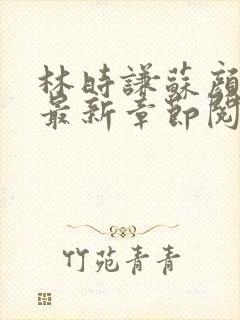 林時謙蘇顏
最新章節閱
竹苑青青